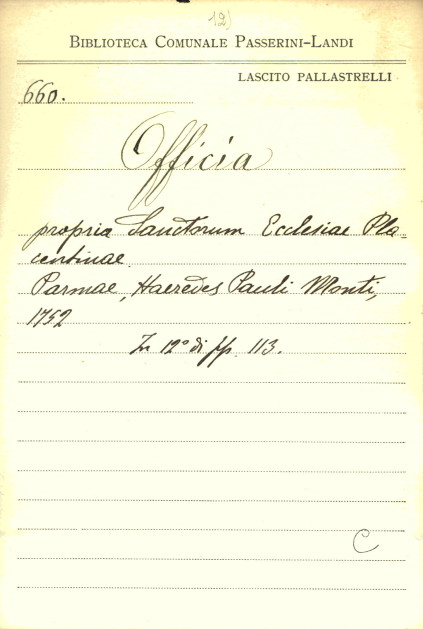 12)
BIBLIOTECA COMUNALE PASSERINI-LANDI
LASCITO PALLASTRELLI
660.
Officia
propria Sanctorum Ecclesiae Pla-
centinae.
Parmae, Haeredes Pauli Monti,
1752
In 12° di pp. 113.
C